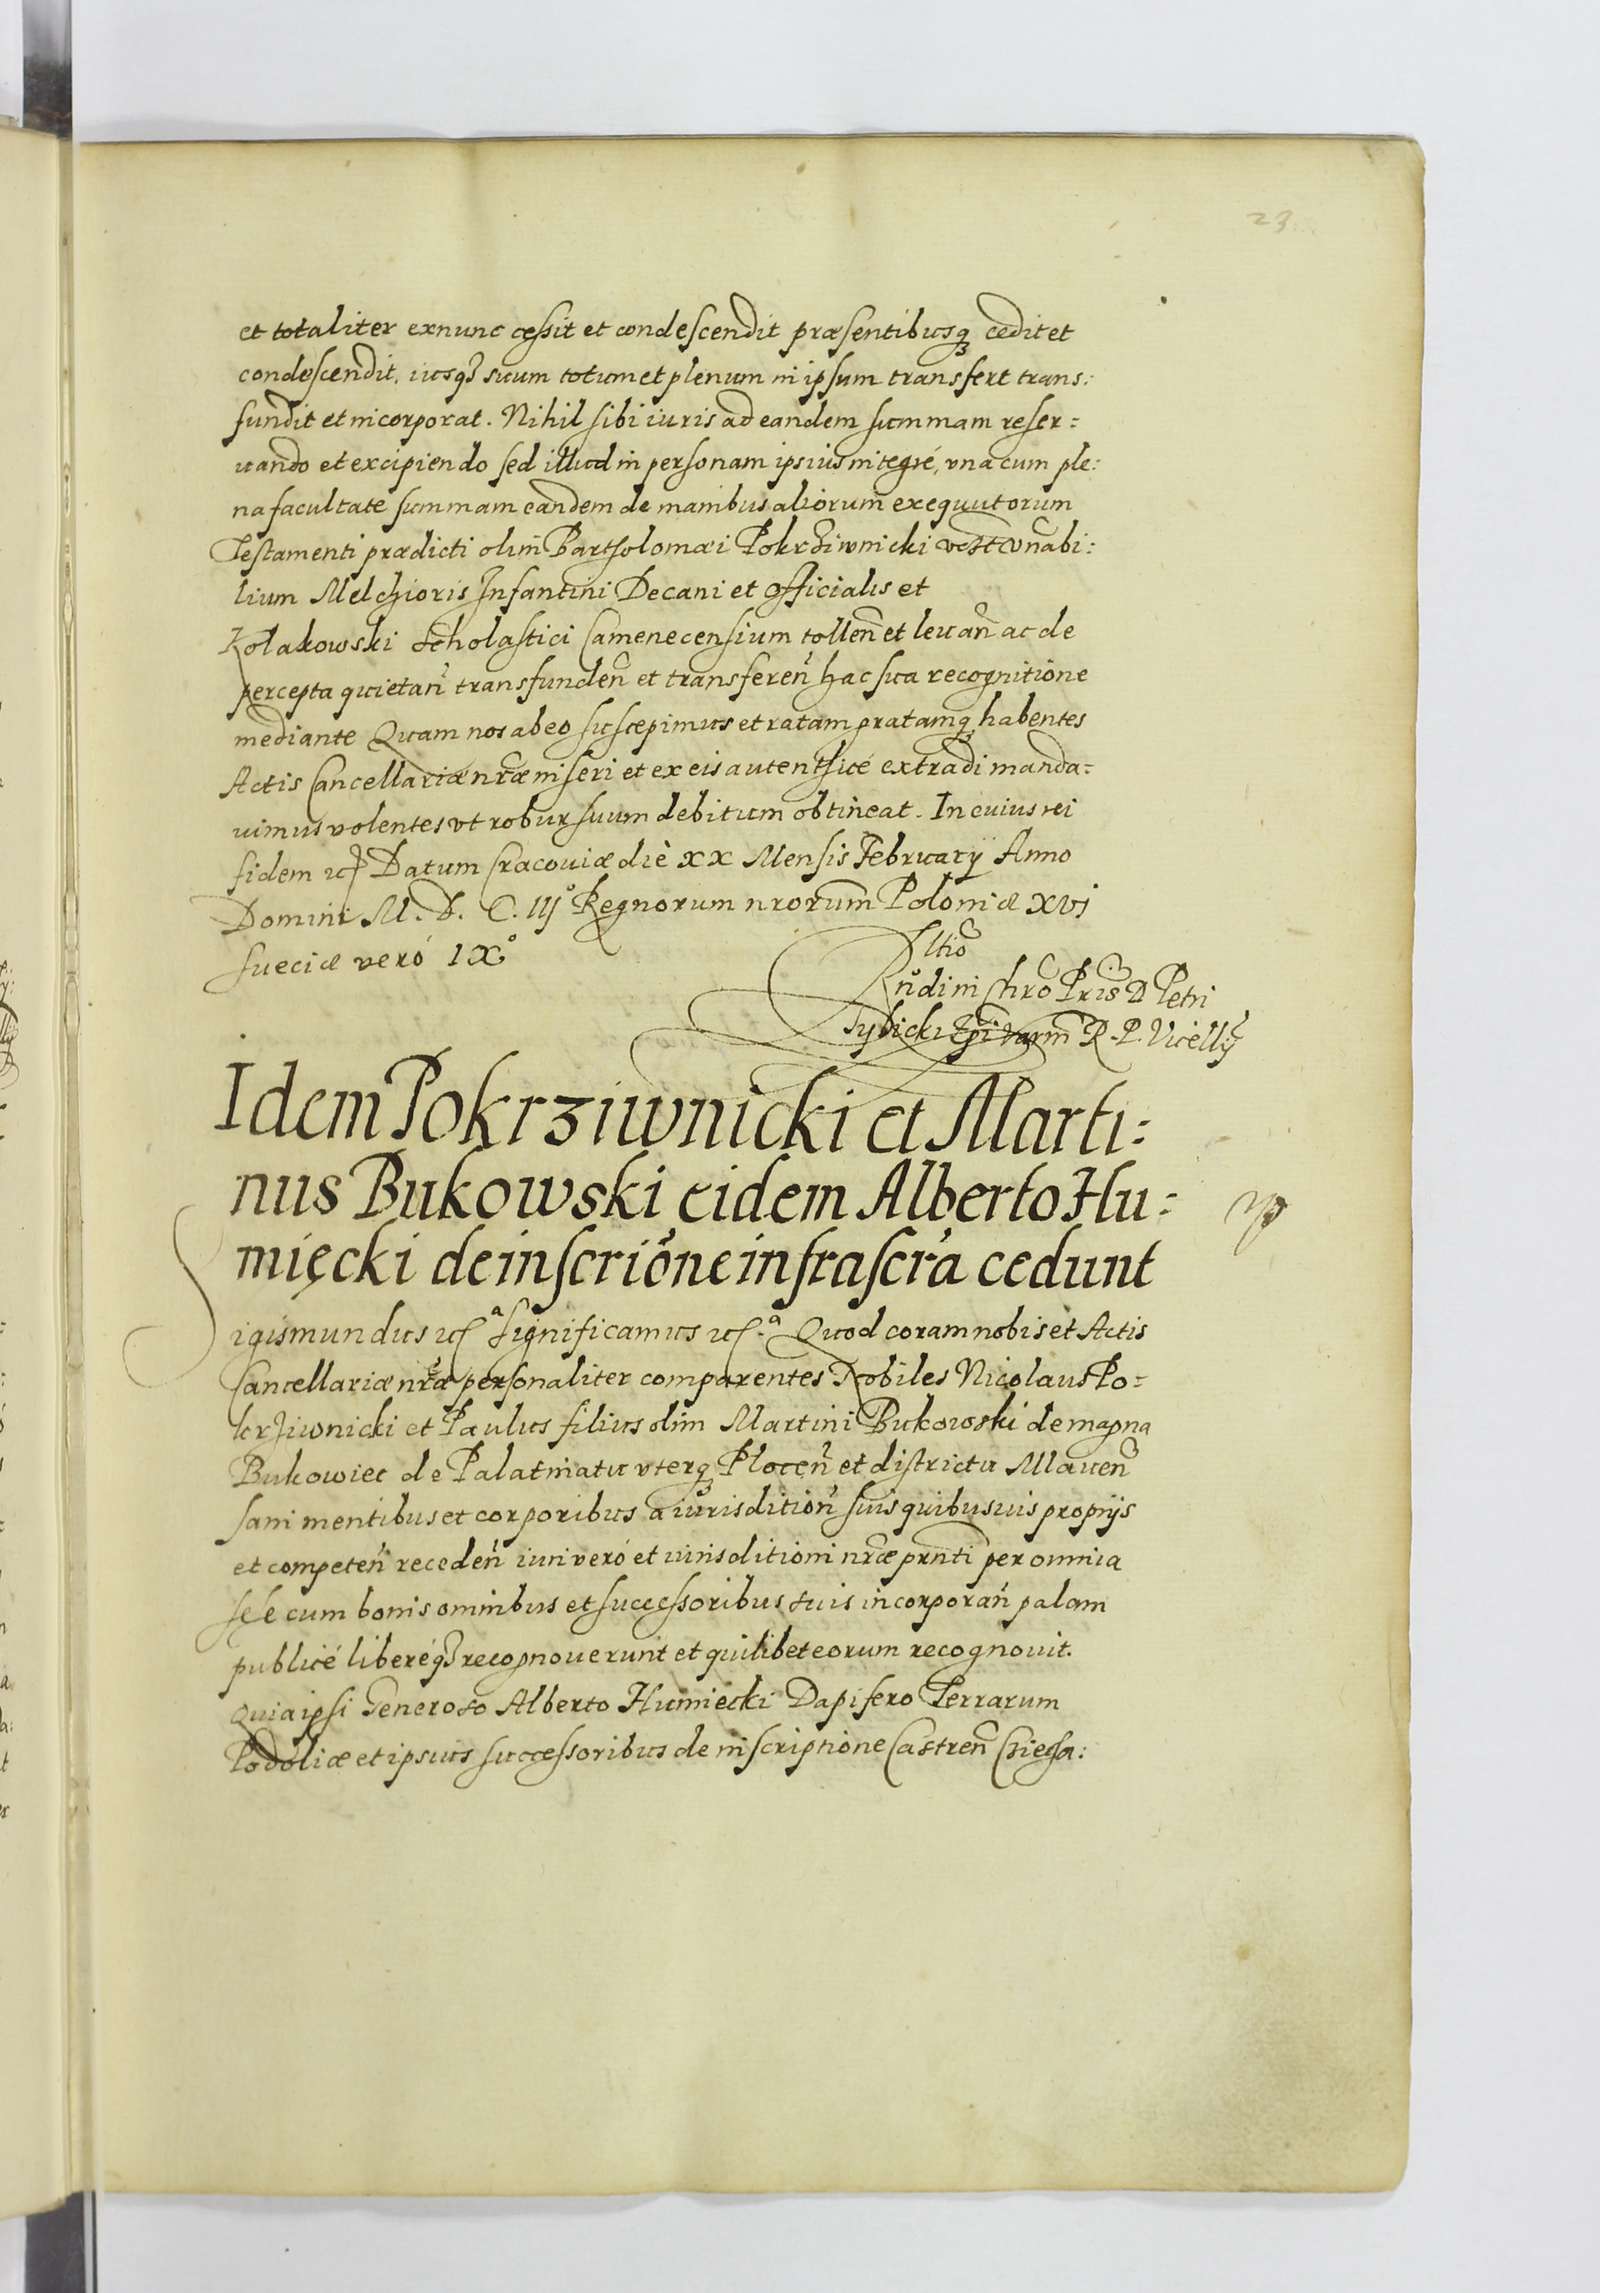 23
et totaliter exnunc cessit et condescendit præsentibusq3 cedit et
condescendit, iusq3 suum totum et plenum in ipsum transfert trans:
fundit et incorporat. Nihil sibi iuris ad eandem summam reser:
uando et excipiendo sed illud in personam ipsius integré, vna cum ple:
na facultate summam eandem de manibus aliorum exequutorum
Testamenti prædicti olim Bartholomæi Pokrziwnicki vnabi:
lium Melchioris Infantini Decani et Officialis et
Kołakowski Scholastici Camenecensium tollen̄ et leuan̄ ac de
percepta quietan̄ transfunden̄ et transferen̄ hac sua recognitione
mediante Quam nos ab eo suscepimus et ratam gratamq habentes
Actis Cancellariæ nr̄æ inseri et ex eis autenthicé extradi manda:
uimus volentes vt robur suum debitum obtineat. In cuius rei
fidem etc Datum Cracouiæ die XX Mensis Februarij Anno
Domini M. D. C. IIIº Regnorum nrorum̄ Poloniæ XVI
Sueciæ veró IXº
Rn̄di in Chrō Pris̄ D Petri
Tylicki Ep̄i R. P. Vicellrij
Idem Pokrziwnicki et Marti:
nus Bukowski eidem Alberto Hu:
mięcki de inscriōne infrascr̄a cedunt
Sigismundus etcª Significamus etcª Quod coram nobis et Actis
Cancellariæ nr̄æ personaliter comparentes Nobiles Nicolaus Po:
krziwnicki et Paulus filius olim Martini Bukowski de magna
Bukowiec de Palatinatu vterq Plocen̄ et districtu Mlauen̄
sani mentibus et corporibus a iurisdition̄ suis quibusuis proprijs
et competen̄ receden̄ iuri veró et iurisditioni nr̄æ prn̄ti per omnia
sese cum bonis omnibus et successoribus suis incorporan̄ palam
publicé liberéq3 recognouerunt et quilibet eorum recognouit.
Quia ipsi Generoso Alberto Humiecki Dapifero Terrarum
Podoliæ et ipsius successoribus de inscriptione Castren̄ Cziecha: